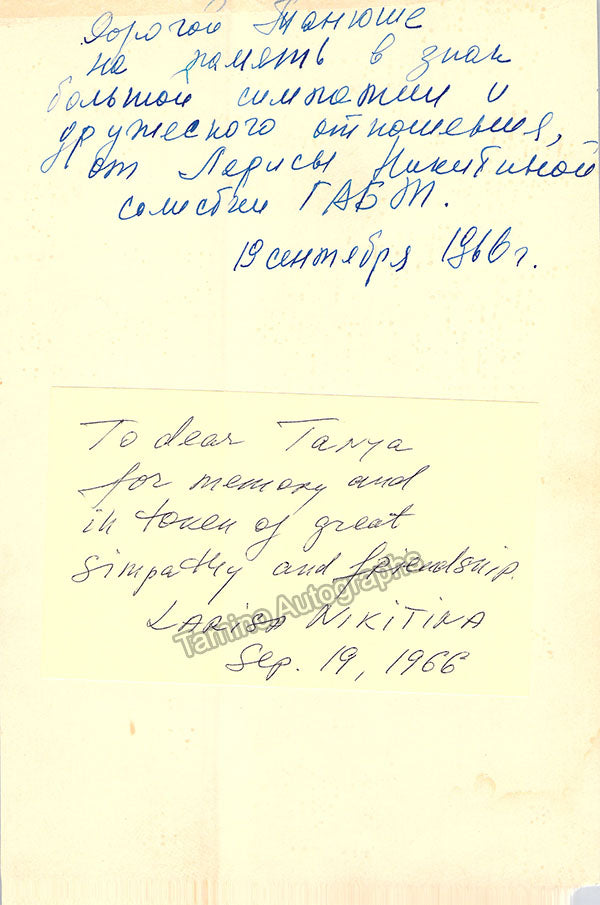 Дорогой Танюше
на память в знак
большой симпатии и
дружеского отношения,
от Ларисы Никитиной
солистки ГАБТ.
19 сентября 1966 г.
To dear Tanya
for memory and
in token of great
simpathy and friendship.
LARISA NIKITINA
Sep. 19, 1966
Tamino Autographs